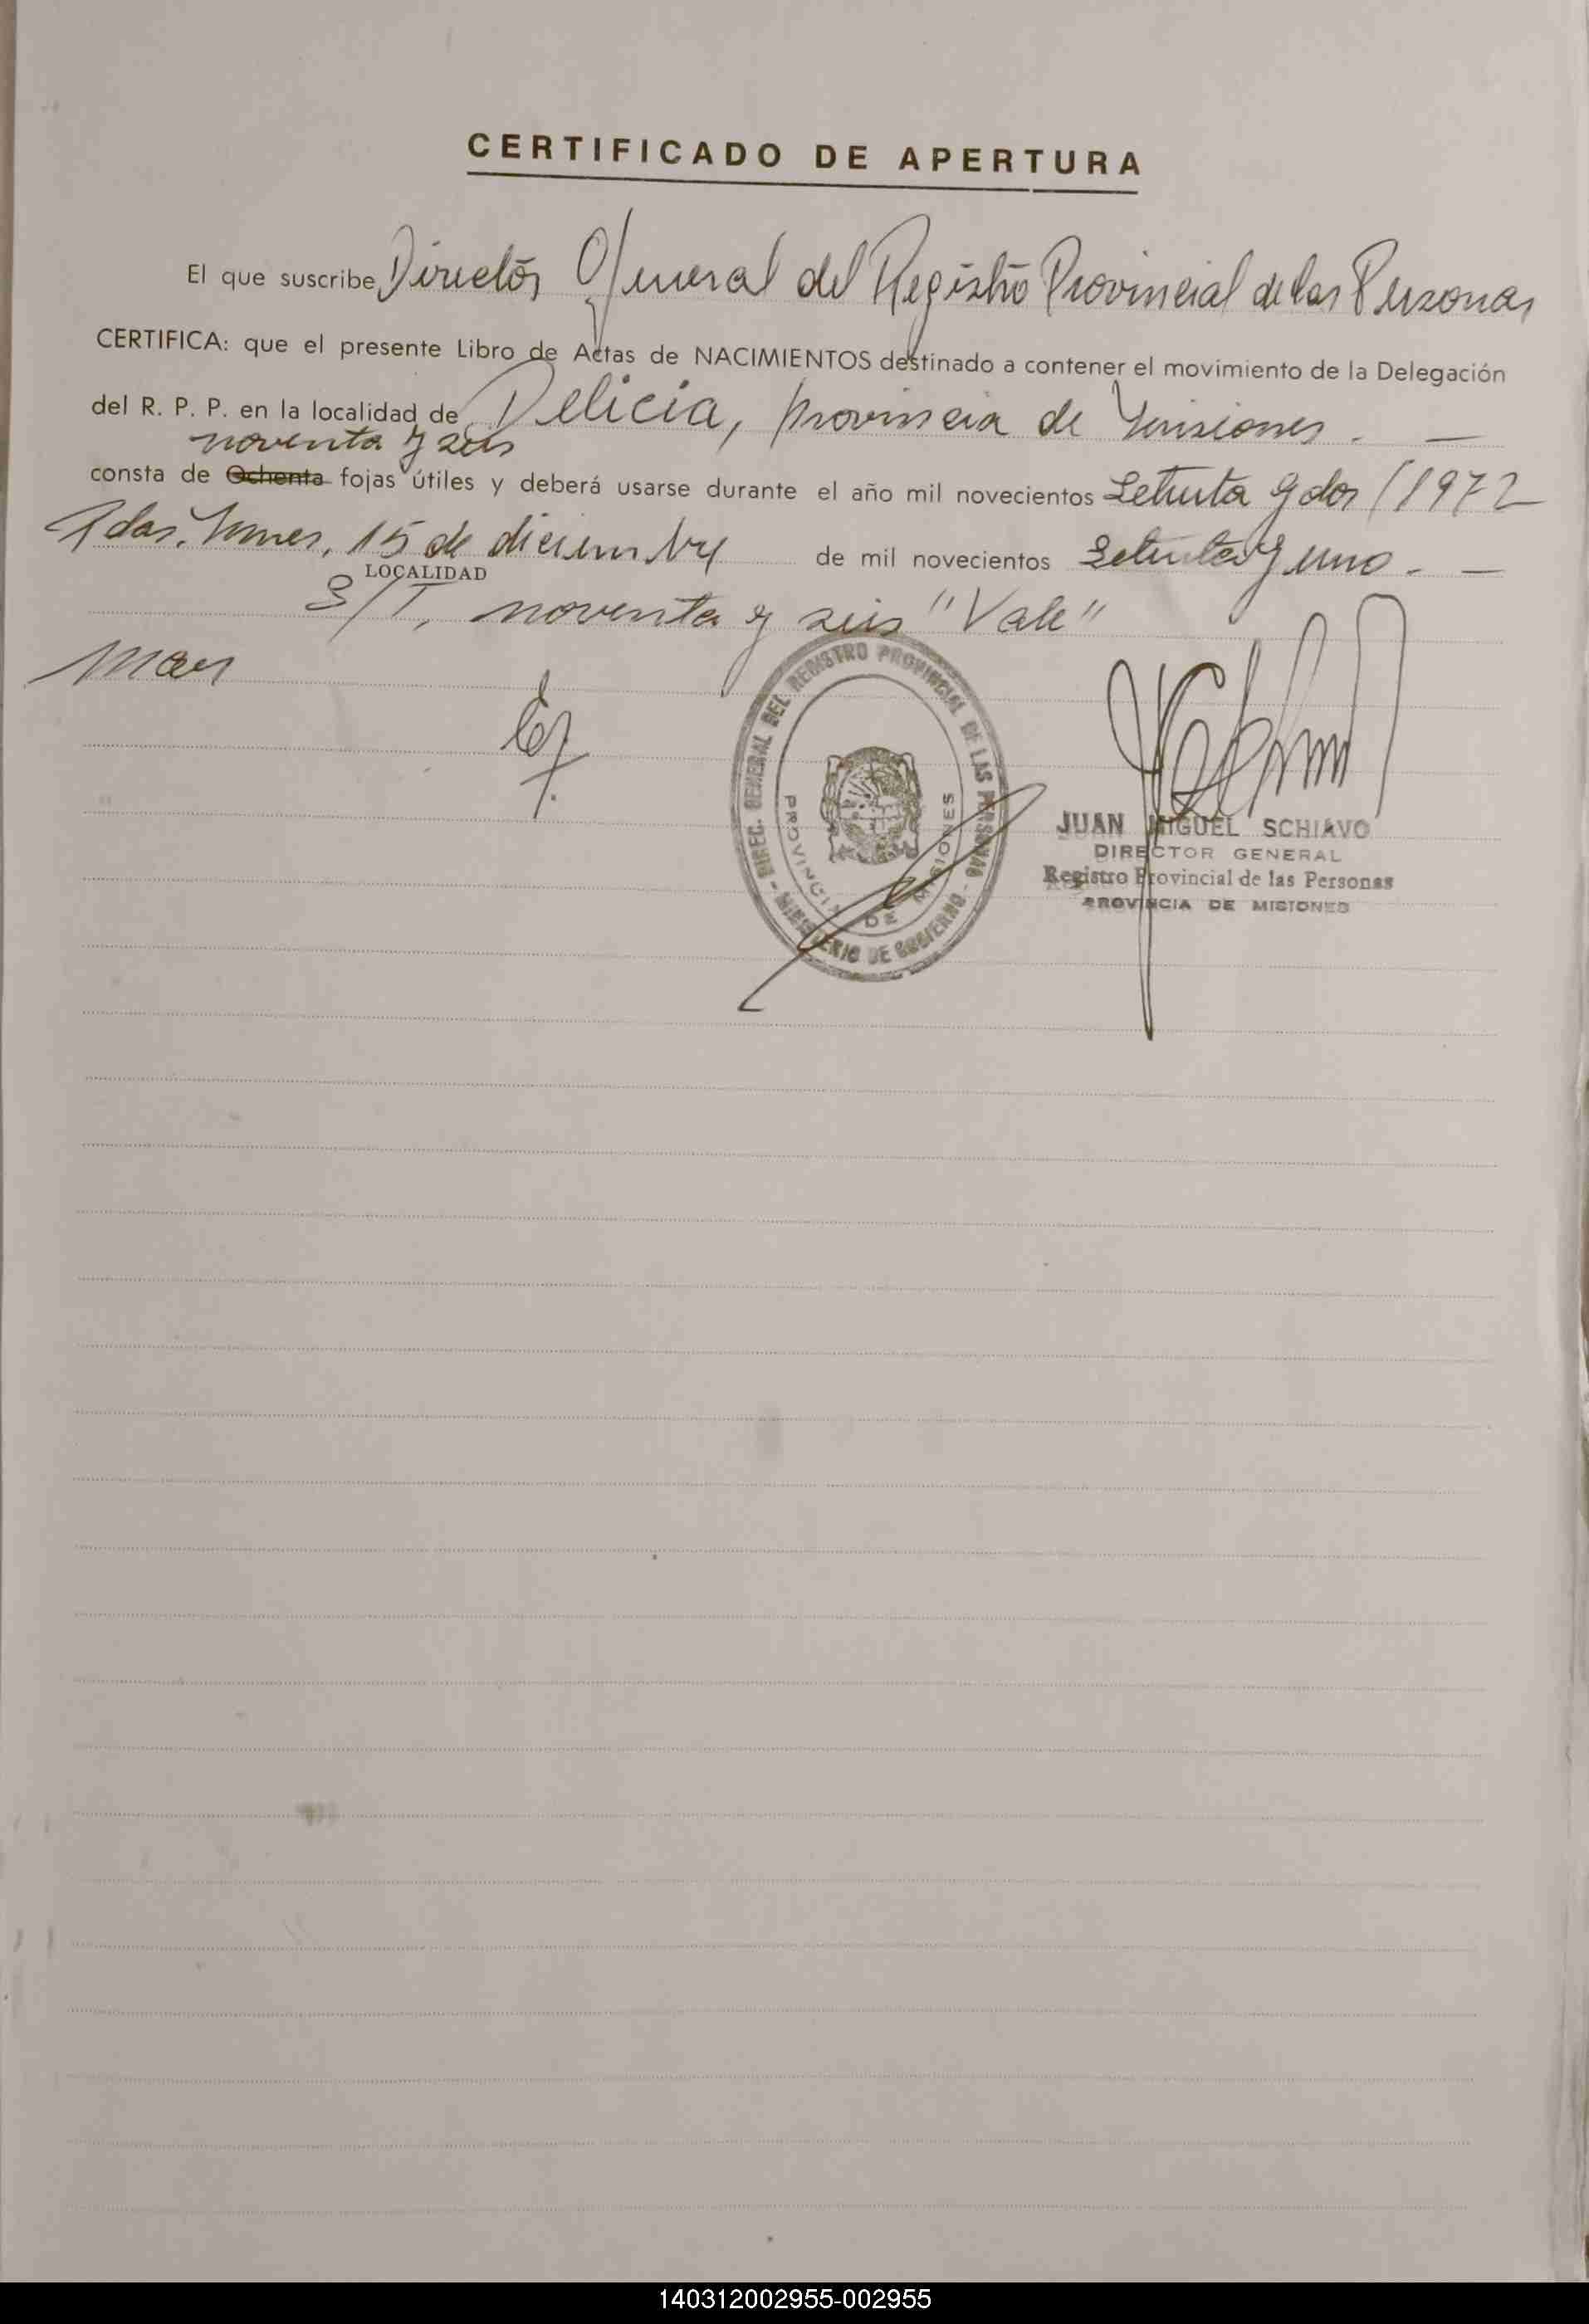 CERTIFICADO DE APERTURA
El que suscribe Director General del Registro Provincial de las Personas
CERTIFICA: que el presente Libro de Actas de NACIMIENTOS destinado a contener el movimiento de la Delegación
del R. P. P. en la localidad de Delicia, provincia de Misiones. —
noventa y seis
consta de Ochenta fojas útiles y deberá usarse durante el año mil novecientos Setenta y dos (1972
Pdas, Mnes, 15 de diciembre de mil novecientos Setenta y uno. —
LOCALIDAD
S/T, noventa y seis "Vale"
DIREC. GENERAL DEL REGISTRO PROVINCIAL DE LAS PERSONAS
PROVINCIA DE MISIONES
- MINISTERIO DE GOBIERNO -
JUAN MIGUEL SCHIAVO
DIRECTOR GENERAL
Registro Provincial de las Personas
PROVINCIA DE MISIONES
140312002955-002955